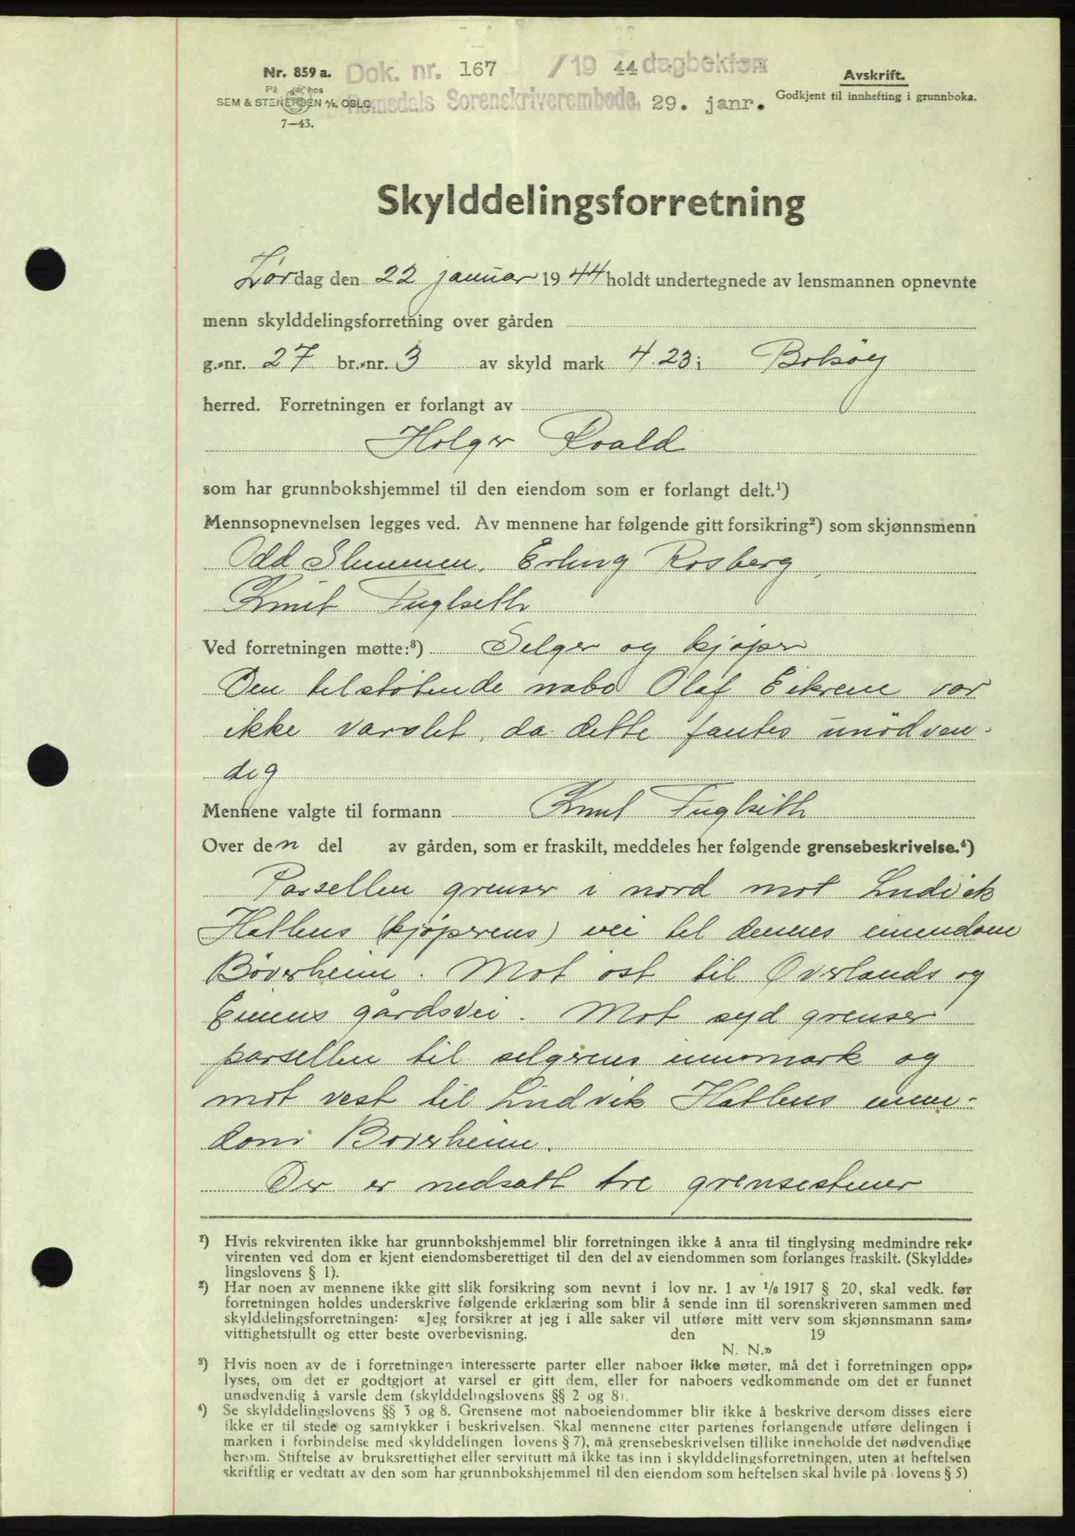 Nr. 859 a.
På lager hos
SEM & STENERSEN A/S, OSLO
7—43.
Dok. nr. 167 /19 44 dagbokføn
Romsdals Sorenskriverembede. 29. janr.
Avskrift.
Godkjent til innhefting i grunnboka.
Skylddelingsforretning
Lørdag den 22 januar 1944 holdt undertegnede av lensmannen opnevnte
menn skylddelingsforretning over gården
g.-nr. 27 br.-nr. 3 av skyld mark 4.23 i Bolsøy
herred. Forretningen er forlangt av
Holger Roald
som har grunnbokshjemmel til den eiendom som er forlangt delt.¹)
Mennsopnevnelsen legges ved. Av mennene har følgende gitt forsikring²) som skjønnsmenn
Odd Slemmen, Erling Rosberg,
Knut Fuglseth
Ved forretningen møtte:³) Selger og kjøper
Den tilstøtende nabo Olaf Eikrem var
ikke varslet, da dette fantes unødven-
dig
Mennene valgte til formann Knut Fuglseth
Over den del av gården, som er fraskilt, meddeles her følgende grensebeskrivelse.⁴)
Parsellen grenser i nord mot Ludvik
Hatlens (kjøperens) vei til dennes eiendom
Bøverheim. Mot øst til Øverlands og
Eimens gårdsvei. Mot syd grenser
parsellen til selgerens innmark og
mot vest til Ludvik Hatlens eien-
dom Boverheim.
Der er nedsatt tre grensestener
¹) Hvis rekvirenten ikke har grunnbokshjemmel blir forretningen ikke å anta til tinglysing medmindre rek-
virenten ved dom er kjent eiendomsberettiget til den del av eiendommen som forlanges fraskilt. (Skyldde-
lingslovens § 1).
²) Har noen av mennene ikke gitt slik forsikring som nevnt i lov nr. 1 av 1/6 1917 § 20, skal vedk. før
forretningen holdes underskrive følgende erklæring som blir å sende inn til sorenskriveren sammen med
skylddelingsforretningen: «Jeg forsikrer at jeg i alle saker vil utføre mitt verv som skjønnsmann sam-
vittighetsfullt og etter beste overbevisning. den 19
N. N.»
³) Hvis noen av de i forretningen interesserte parter eller naboer ikke møter, må det i forretningen opp-
lyses, om det er godtgjort at varsel er gitt dem, eller for naboers vedkommende om det er funnet
unødvendig å varsle dem (skylddelingslovens §§ 2 og 8).
⁴) Se skylddelingslovens §§ 3 og 8. Grensene mot naboeiendommer blir ikke å beskrive dersom disses eiere
ikke er til stede og samtykker i beskrivelsen. Skal mennene etter partenes forlangende utføre delingen i
marken i forbindelse med skylddelingen lovens § 7), må grensebeskrivelsen tillike inneholde det nødvendige
herom. Stiftelse av bruksrettighet eller servitutt må ikke tas inn i skylddelingsforretningen, uten at heftelsen
skriftlig er vedtatt av den som har grunnbokshjemmel til den eiendom som heftelsen skal hvile på lovens § 5)